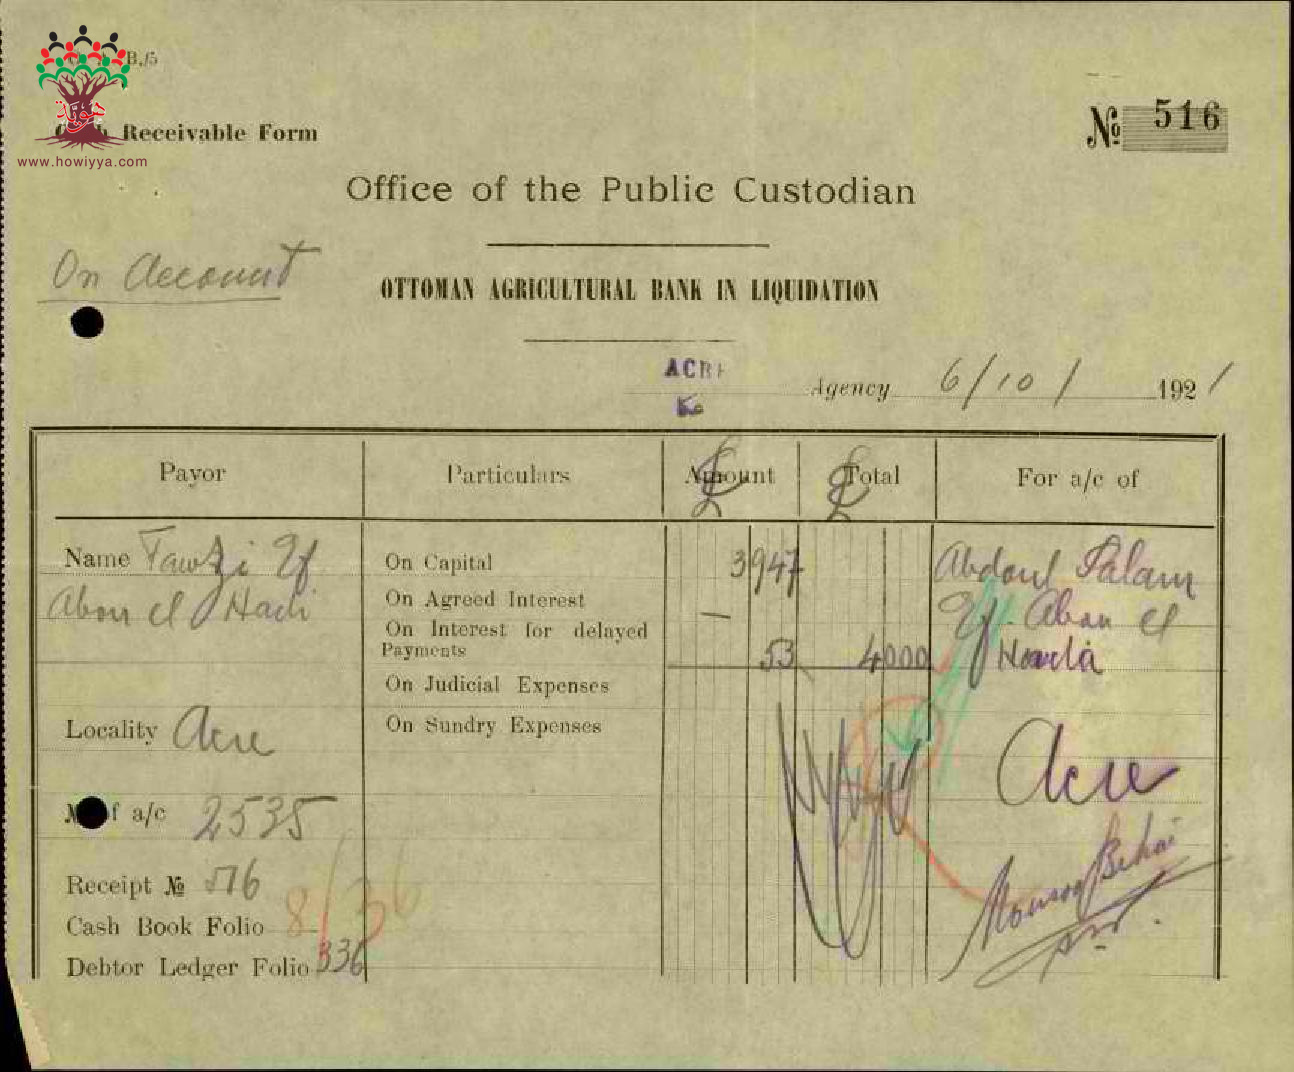 B./5
هوية
www.howiyya.com
Receivable Form
№ 516
Office of the Public Custodian
On Account
OTTOMAN AGRICULTURAL BANK IN LIQUIDATION
ACRE
Agency 6/10/ 1921
Payor Particulars Amount Total For a/c of
£ £
Name Fawzi Ef On Capital 3 947 Abdoul Salam
Abou el Hadi On Agreed Interest — Ef. Abou el
On Interest for delayed
Payments 53 4000 Houda
On Judicial Expenses
Locality Acre On Sundry Expenses Acre
of a/c 2535
Receipt № 516
Cash Book Folio 8/36
Debtor Ledger Folio 336